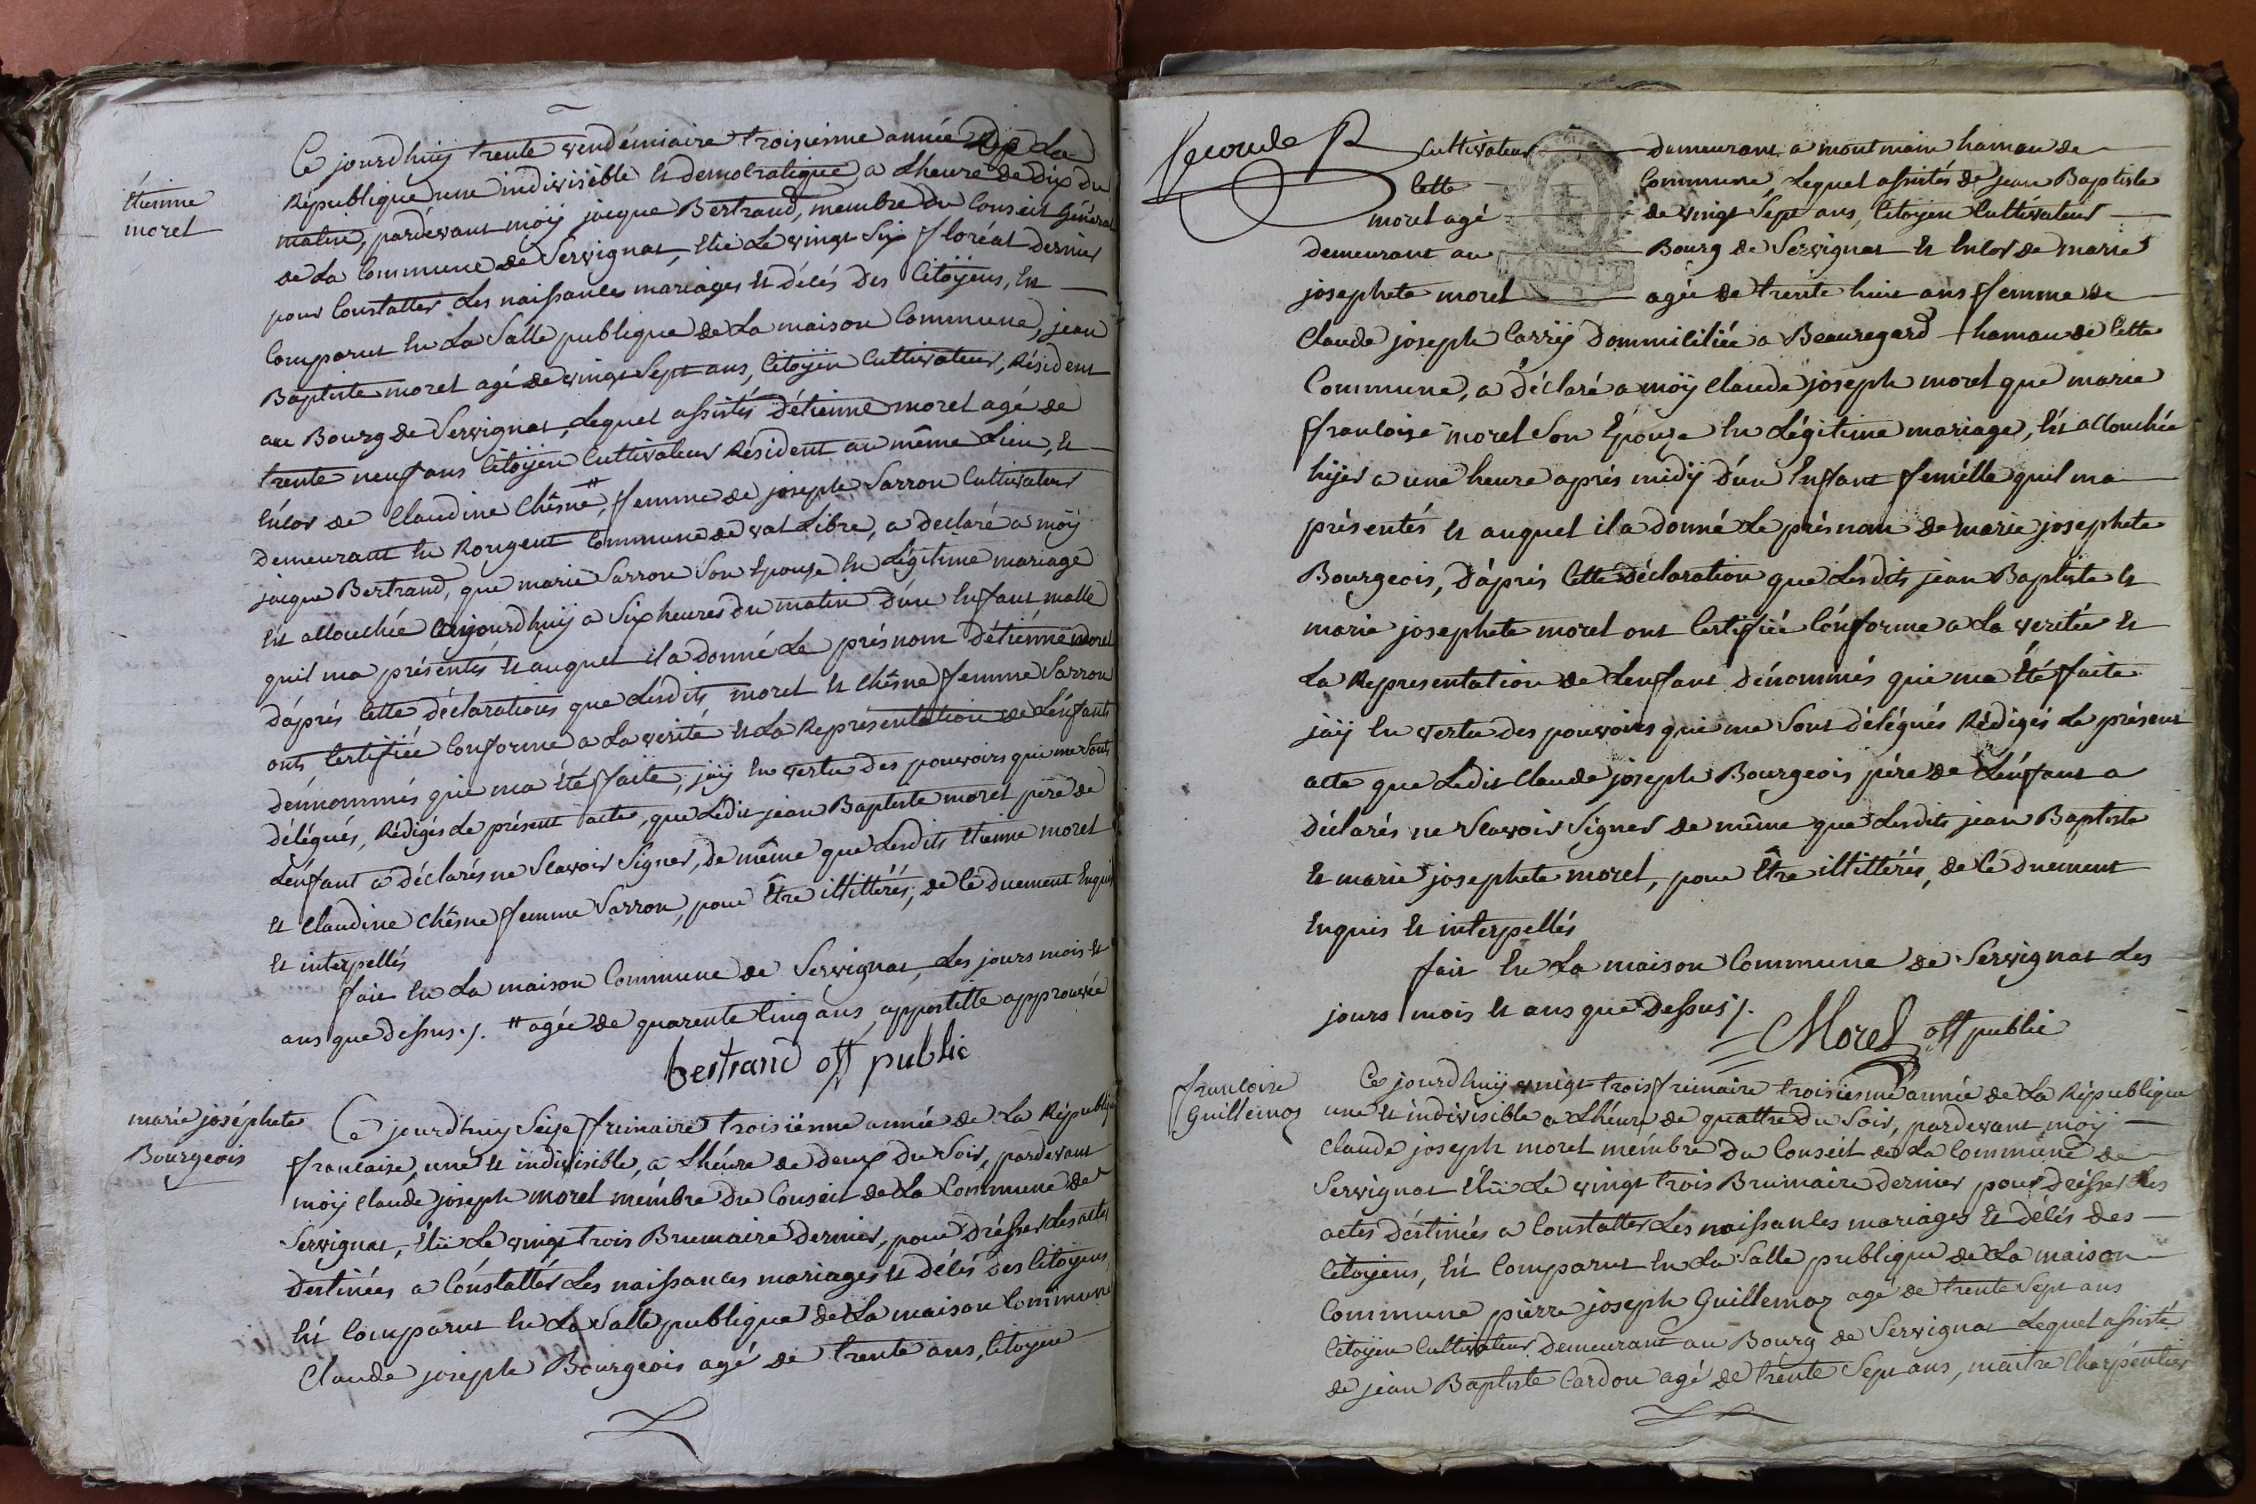 étienne
moret
Ce jourdhuÿ trente vendémiaire troisiesme année De La
Republique une indivisible et democratique, a Lheure de Dix du
matin, pardevant moÿ jacque Bertrand, membre du Conseil Général
de La Commune de Servignat, élié Le vingt Six floréal dernier
pour Constatter Les naissances mariages et décés des Citoÿens, Est
Comparut En La Salle publique de La maison Commune, jean
Baptiste moret agé de vingt Sept ans, Citoÿen Cultivateur, Résident
au Bourg de Servignat, Lequel assistés d'étienne moret agé de
trente neuf ans Citoÿen Cultivateur Résident au même Lieu, et
Encor de Claudine Chêsne #, femme de joseph Sarron Cultivateur
Demeurant En Rongent Commune de val Libre, a declaré a moÿ
jacque Bertrand, que marie Sarron Son Epouze En Légitime mariage
Est accouchée aujourdhuÿ a Six heures du matin d'un Enfant malle
quil ma présentés et auquel il a donné Le présnom D'étienne moret
D'aprés Cette déclarations que Lesdits, moret et Chêsne femme Sarron
onts Certifiée Conforme a La verité et La Représentation de L'enfants
dénnommés qui ma été faite, jaÿ En vertu des pouvoirs qui me sonts
délégués, Rédigés Le présent acte, que Ledit jean Baptiste moret père de
L'énfant a déclarés ne Scavoir Signer, de même que Lesdits Etienne moret
et Claudine Chêsne femme Sarron, pour Être illittérés, de Ce duement Enquis
et interpellés
fait En La maison Commune de Servignat, Les jours mois et
ans que dessus ./. # agée de quarente Cinq ans, appostille approuvée
bertrand off public
marie joséphete
Bourgeois
Ce jourdhuy Seize frimaire troisiènne année de La République
francaise, une et indivisible, a Lhéure de deux du Soir, pardevant
moÿ Claude joseph moret mémbre du Conseil de La Commune de
Servignat, élié Le vingt trois Brumaire dernier, pour drésser Les actes
destinées a Constatter Les naissances mariages et décés des Citoÿens,
Est Comparut En La Salle publique de La maison Commune
Claude joseph Bourgeois agé de trente ans, Citoÿen
Seconde
Cultivateur demeurant a montmain hamau de
Cette Commune, Lequel assistés de jean Baptiste
moret agé de vingt Sept ans, Citoÿen Cultivateur
demeurant au Bourg de Servignat et Encor de marie
josephete moret agée de trente huit ans femme de
Claude joseph Carrÿ Dommiciliée a Beauregard hamau de Cette
Commune, a déclaré a moÿ Claude joseph moret que marie
francoise moret Son Epouze En Légitime mariage, Est accouchée
hÿer a une heure aprés midÿ d'un Enfant femélle quil ma
présentés et auquel il a donné Le présnom de marie josephete
Bourgeois, D'aprés Cette déclaration que Lesdits jean Baptiste et
marie josephete moret ont Certifiée Conforme a La verité et
La Representation de Lenfant dénommés qui ma été faite
jaÿ En vertu des pouvoirs qui me Sont délégués Rédigés Le présent
acte que Ledit Claude joseph Bourgeois père de L'énfant a
déclarés ne Scavoir Signer de même que Lesdits jean Baptiste
et marie josephete moret, pour Être illittérés, de Ce duement
Enquis et interpellés
fait En La maison Commune de Servignat Les
jours mois et ans que dessus ./.
Morel off public
francoise
Guillemoz
Ce jourdhuÿ vingt trois frimaire troisiesme année de La République
une et indivisible a Lhéure de quattre du Soir, pardevant moÿ
Claude joseph moret mémbre du Conseil de La Commune de
Servignat élié Le vingt trois Brumaire dernier pour drésser Les
actes déstinées a Constatter Les naissances mariages et décés des
Citoÿens, Est Comparut En La Salle publique de La maison
Commune pierre joseph Guillemoz agé de trente Sept ans
Citoÿen Cultivateur demeurant au Bourg de Servignat Lequel assisté
de jean Baptiste Cardon agé de trente Sept ans, maitre Charpéntier